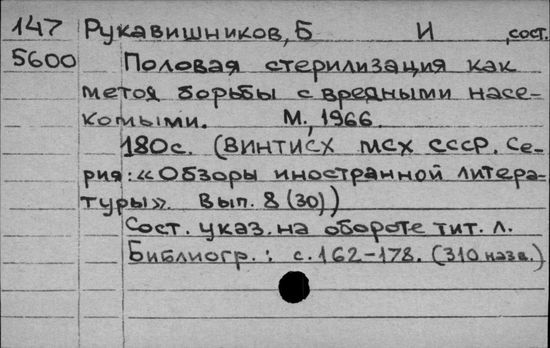 147 Рукавишников, Б И , сост.
5600 Половая стерилизация как
метод борьбы с вредными насе-
комыми. М., 1966.
180с. (ВИНТИСХ МСХ СССР. Се-
рия: «Обзоры иностранной литера-
туры». Вып. 8 (30))
Сост. указ. на обороте тит. л.
Библиогр.: с. 162-178. (310 назв.)